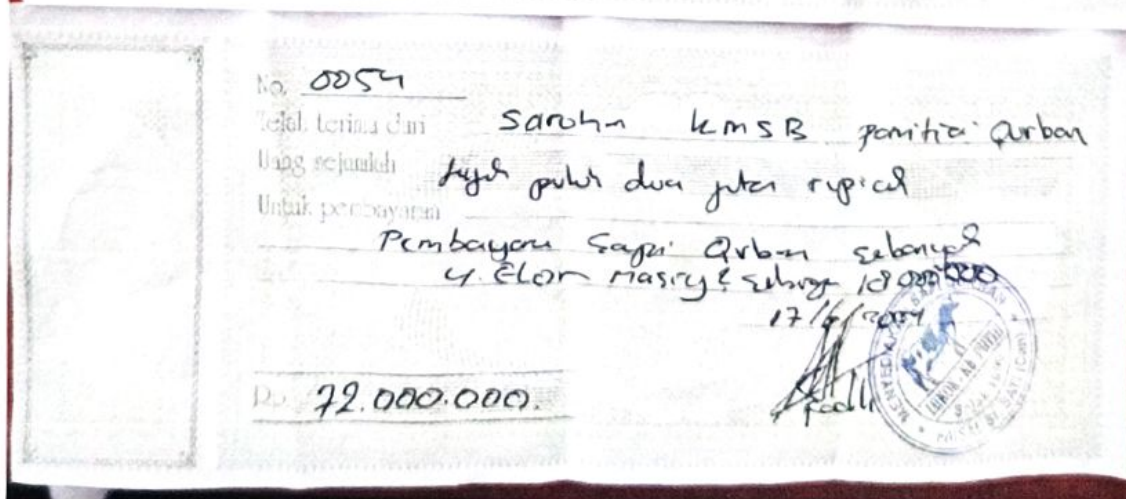 No. 0054
Telah terima dari Saroha KMSB panitia Qurban
Uang sejumlah tujuh puluh dua juta rupiah
Untuk pembayaran
Pembayaran Sapi Qurban sebanyak
4 Ekor masing2 seharga 18.000.000
17/6/2024
Rp. 72.000.000.
Fadli